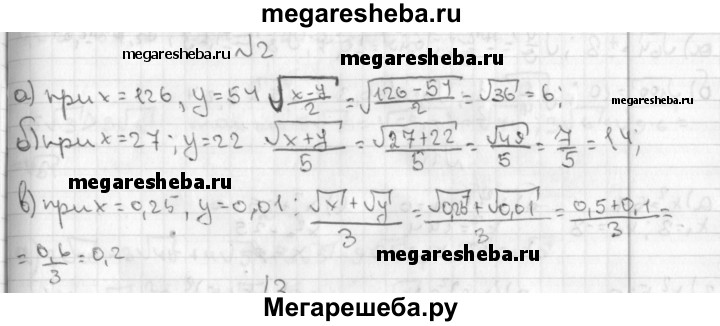 megaresheba.ru
megaresheba.ru №2 megaresheba.ru
а) при x=126, y=54 √((x-y)/2) = √((126-54)/2) = √36 = 6; megaresheba.ru
б) при x=27; y=22 √(x+y)/5 = √(27+22)/5 = √49/5 = 7/5 = 1,4;
megaresheba.ru
в) при x=0,25, y=0,01: (√x+√y)/3 = (√0,25+√0,01)/3 = (0,5+0,1)/3 =
= 0,6/3 = 0,2 megaresheba.ru
Мегарешеба.ру